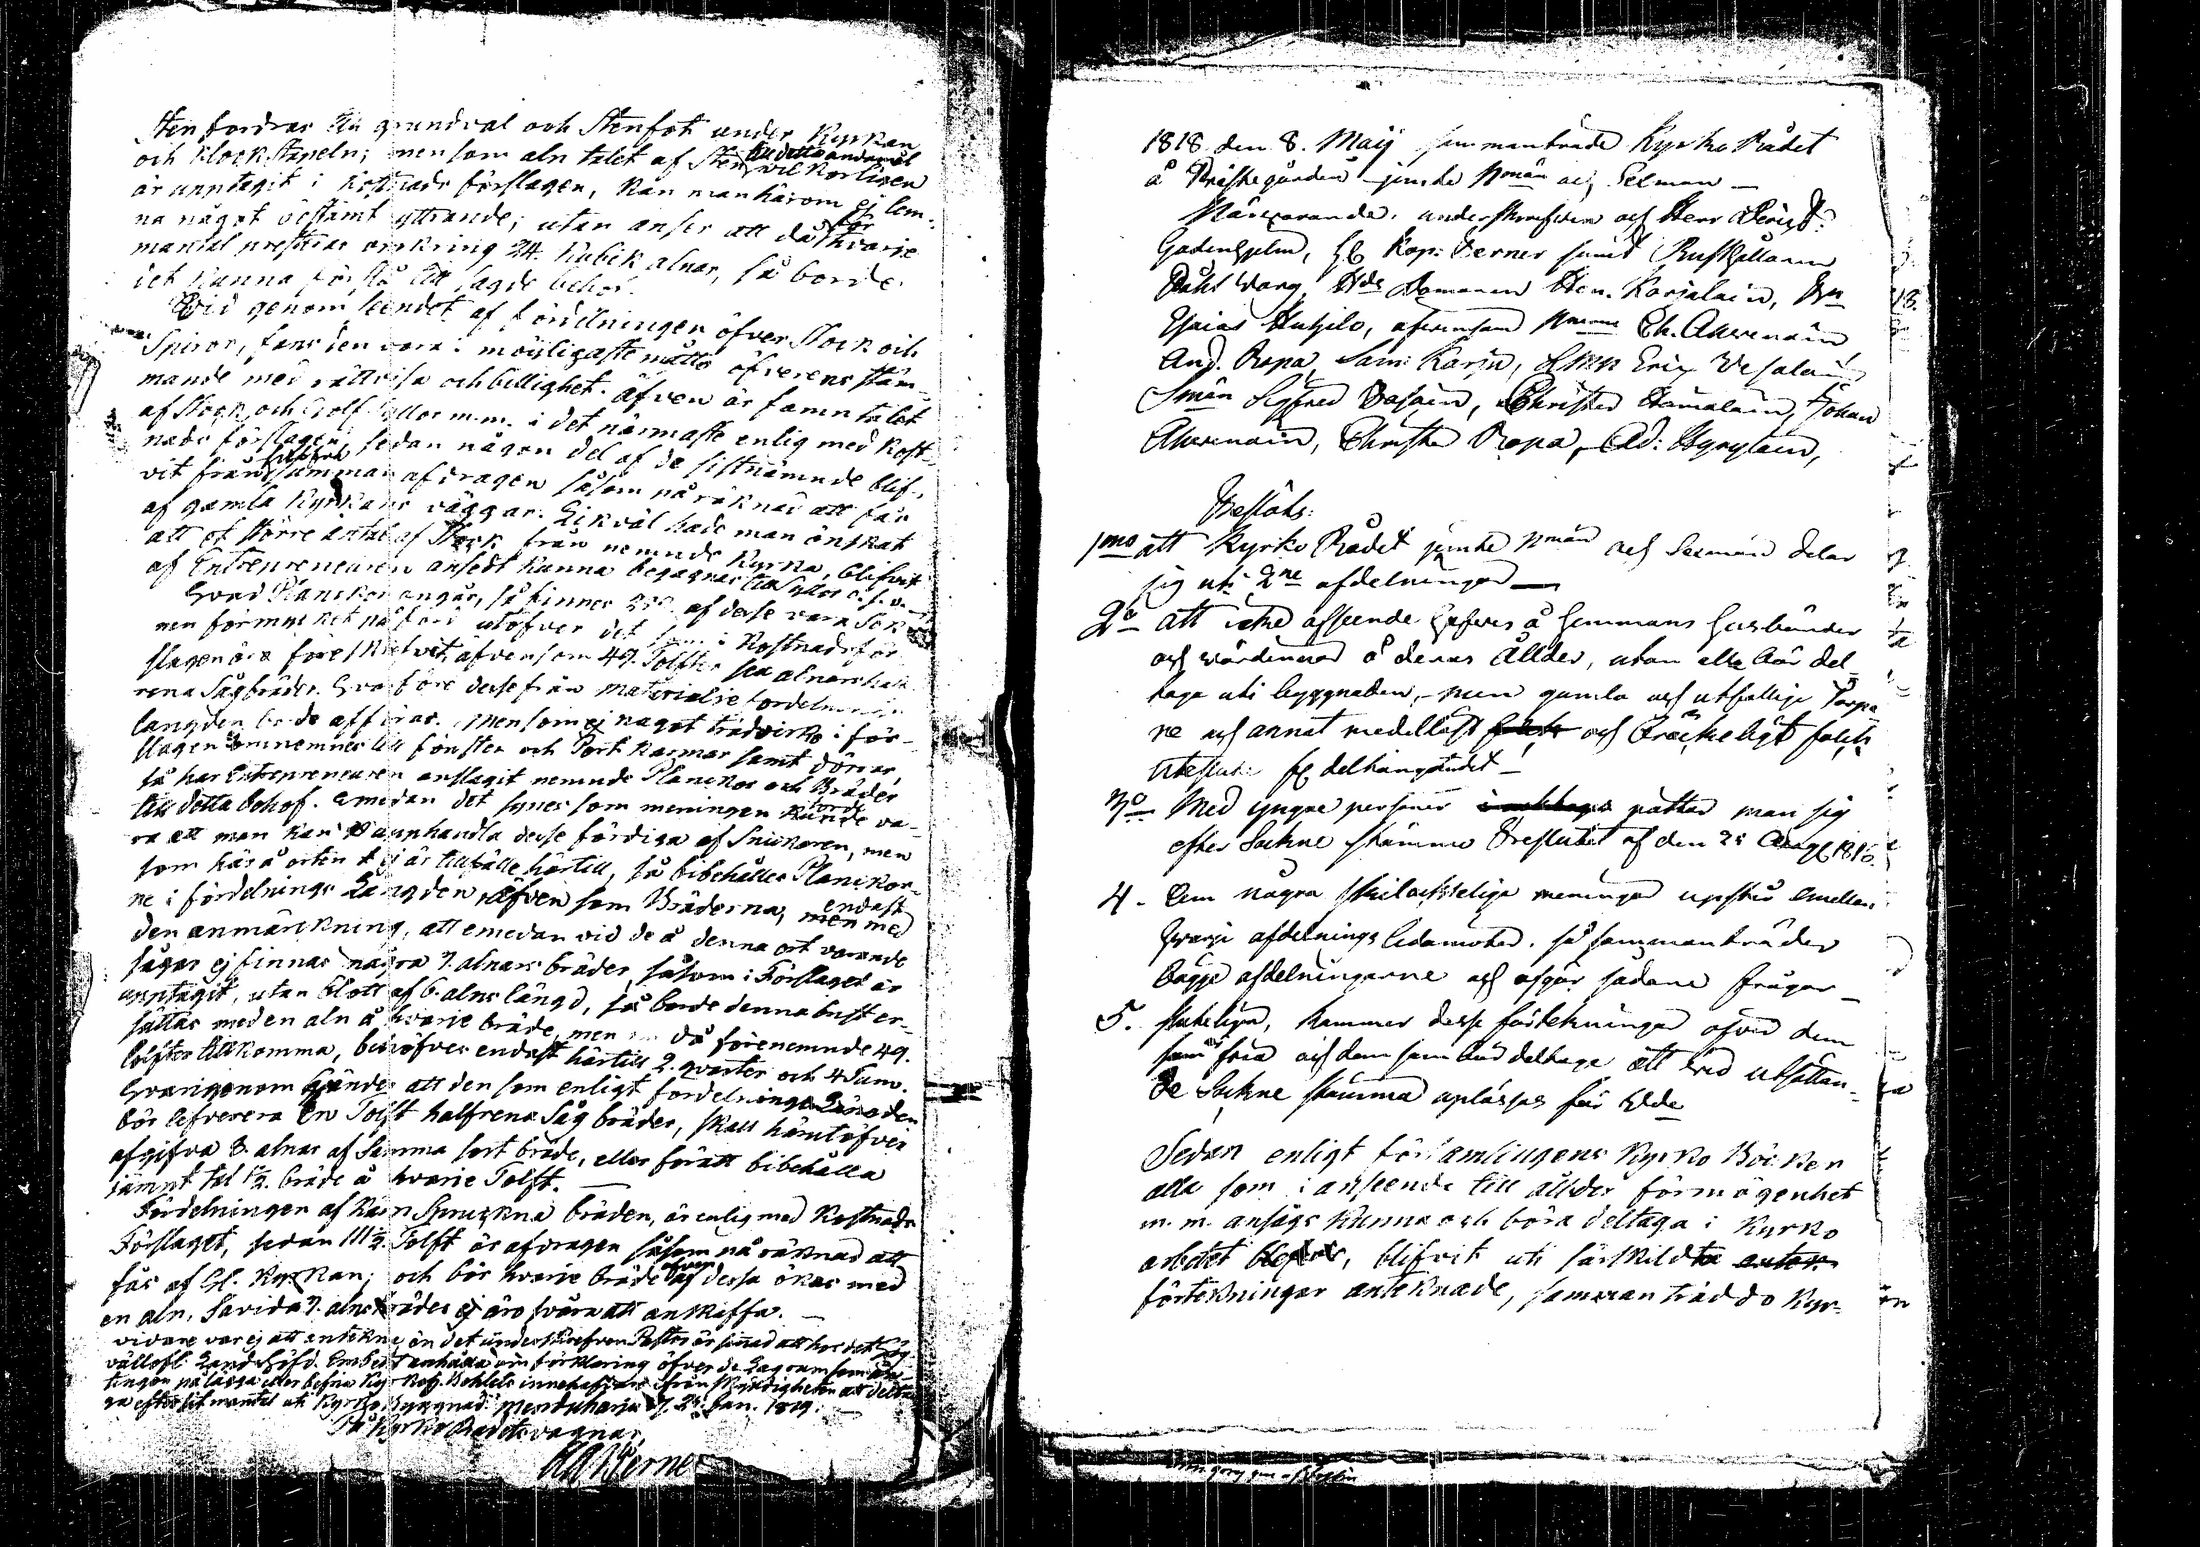 Sten fordras till grundval och Stenfot under Kyrkan
och Klock Stapeln; men som aln talet af Sten till detta andamål wilkorligen
är upptagit i Kostnads förslagen, kan man härom ej lem-
na något bestämt yttrande; utan anser att då för hvarje
mantal prestras omkring 24. Kubik alnar, så borde
det kunna förslå till sagde behof.
Vid genom seendet af fördelningen öfver Stock och
Spiror, fans den vara i möjligaste måtto öfverens stäm-
mande med rättvisa och billighet. äfven är famn talet
af Stock, och Golf tillor m.m. i det närmaste enlig med Kost-
nads förslagen, sedan någon del af de sistnämnde blif-
vit från summan afdragen såsom påräknad att fås
af gamla Kyrkans väggar. Likväl hade man önskat
att et större antal af Stock från nemnde Kyrka, blifvit
af Entrepreneuren ansedt kunna begagnas
Hvad Planckor angår, så finnes af desse vara
men förmycket påförd utöfver det som i Kostnads för
slagen är föreskrifvit, äfvensom 49. Tolfter sex alnars half
rena Sågbräder. Hvarföre desse från materialie fordelnings
längden borde afföras. Men som ej något trädvirke i för-
slagen omnemnes till fönster och Port karmar samt dörrar,
så har Entrepreneuren anslagit nemnde Planckor och Bräder
till detta behof. Emedan det synes som meningen torde va-
ra att man kan upphandla desse färdiga af Snickaren, men
som här å orten ej är tillfälle härtill, så bibehålles Planckor-
ne i fördelnings Längden, äfven som Bräderna, endast med
den anmärckning, att emedan vid de å denna ort varande
sågar ej finnas några 7. alnars bräder, såsom i Förslaget är
upptagit, utan blott af 6. alns längd, så borde denna brist er-
sättas med en aln å hvarje bräde, men då förenemnde 49.
tolfter tillkomma, behöfves endast härtill 2. qvarter och 4 Tum.
Hvarigenom händer att den som enligt fordelnings Längden
bör lefverera En Tolft halfrena Såg bräder, skall härutöfver
afgifva 8. alnar af Samma sort bräde, eller för att bibehålla
jämnt tal 1½. bräde å hvarje Tolft.
Fördelningen af Ren Spruckna bräden, är enlig med Kostnads
Förslaget, sedan 111½ Tolft är afdragen såsom påräknad att
fås af Gl. Kyrkan; och bör hvarje bräde äfven af dessa ökas med
en aln, Savida 7. alns bräder ej äro svåra att anskaffa.
vidare var ej att anteknä, än det underskrefven Pastor är sinnad att hos det Hög-
vällofl. Landshöfd. Embet anhålla om förklaring öfver de Lagrum som
tingen pålägga eller befria innehafvare ifrån skyldigheten att delta-
ga efter sit mantal uti Kyrko byggnad. Menducharju d. 24. Jan. 1819.
På Kyrko Rådets vagnar,
Werner
1818 den 8. Maij sammanträde Kyrko Rådet
å Prästegården jemte Nmän och Sexman
Närvarande, underskrefven och Herr
Gadenhjelm, Kap: Verner samt Rusthållaren
Domaren Hen. Karjalain,
Esaias Huhzilo, Ch. Ahvenain
And. Ropa, Sam: Karju, Eric Vesalain
Smän Sigfred Vasain, Christer Hämäläin, Johan
Ahvenain, Christer Ropa, Ad: Hyrylain,
Beslöts:
1mo att Kyrko Rådet jemte Nmän och Sexmän delar
sig uti 2ne afdelningar
2o att icke afseende hafves å Hemmans Husbönder
och värdinnor å deras Ållder, utan alla bör del
taga uti byggnaden, men gamla och utfattige Torpa
re och annat medellöst och bräckeligt folk
3o Med yngre personer rättar man sig
efter Sockne stämmo Beslutet af den 25 Aug 1816.
4. Om några skiljaktelige meningar upstår emellan
hvarje afdelnings Ledamoter, så sammanträder
bägge afdelningarne och afgör sådane frågor
5. slutligen, kommer desse förtekningar öfver dem
som är fria och dem som bör deltaga att vid utsattan-
de Sockne stämma upläsas för
Sedan enligt församlingens Kyrko Böcker
alla som i anseende till ållder förmögenhet
m. m. ansågs kunna och böra deltaga i Kyrko
arbetet, blifvit uti särskildta
förtekningar anteknade, sammanträdde Kyr-